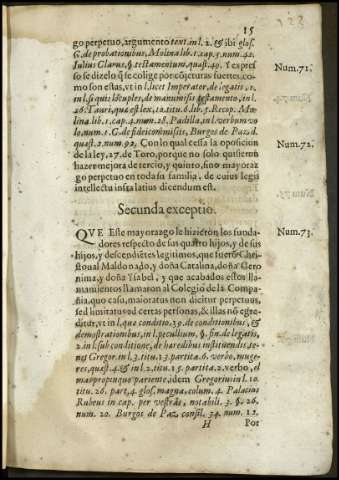 15
go perpetuo, argumento text. in l. 2. & ibi glos.
C. de probationibus, Molina lib. 1. cap. 5. num. 42.
Iulius Clarus, §. testamentum, quæst. 49. Y expres
so se dize lo q̃ se colige por cõjeturas fuertes, co
mo son estas, vt in l. licet Imperator, de legatis, 1.
in l. si quis locuples, de manumissis testamento, in l.
26. Tauri, quæ est lex, 12. titu. 6. lib. 5. Recop. Mo-
lina lib. 1. cap. 4. num. 28. Padilla in l. cum verbum vo
lo, num. 1. C. de fideicommissis, Burgos de Paz d.
quæst. 2. num. 92. Con lo qual cessa la oposicion
de la ley, 27. de Toro, porque no solo quisieron
hazer mejora de tercio, y quinto, sino mayoraz
go perpetuo en toda su familia, de cuius legis
intellectu infra latius dicendum est.
Num. 71.
Num. 72.
Secunda exceptio.
QVE Este mayorazgo le hizierõ los funda-
dores respecto de sus quatro hijos, y de sus
hijos, y descendiẽtes legitimos, que fuerõ Chri-
stoual Maldonado, y doña Catalina, doña Gero
nima, y doña Ysabel, y que acabados estos lla-
mamientos llamaron al Colegio de la Compa-
ñia, quo casu, maioratus non dicitur perpetuus,
sed limitatus ad certas personas, & illas nõ egre-
ditur, vt in l. quæ conditio, 39. de conditionibus, &
demostrationibus, in l. peculium, §. fin. de legatis,
2. in l. sub conditione, de hæredibus instituendis, te-
net Gregor. in l. 3. titu. 13. partita. 6. verbo, muge-
res, quæst. 4. & in l. 2. titu. 15. partita 2. verbo, el
mas propinquo pariente, idem Gregorius in l. 10.
titu. 26. part. 4. glos. magna, colum. 4. Palacius
Rubeus in cap. per vestras, notabili. 3. §. 26.
num. 20. Burgos de Paz, consil. 34. num. 12.
Num. 73.
H Por